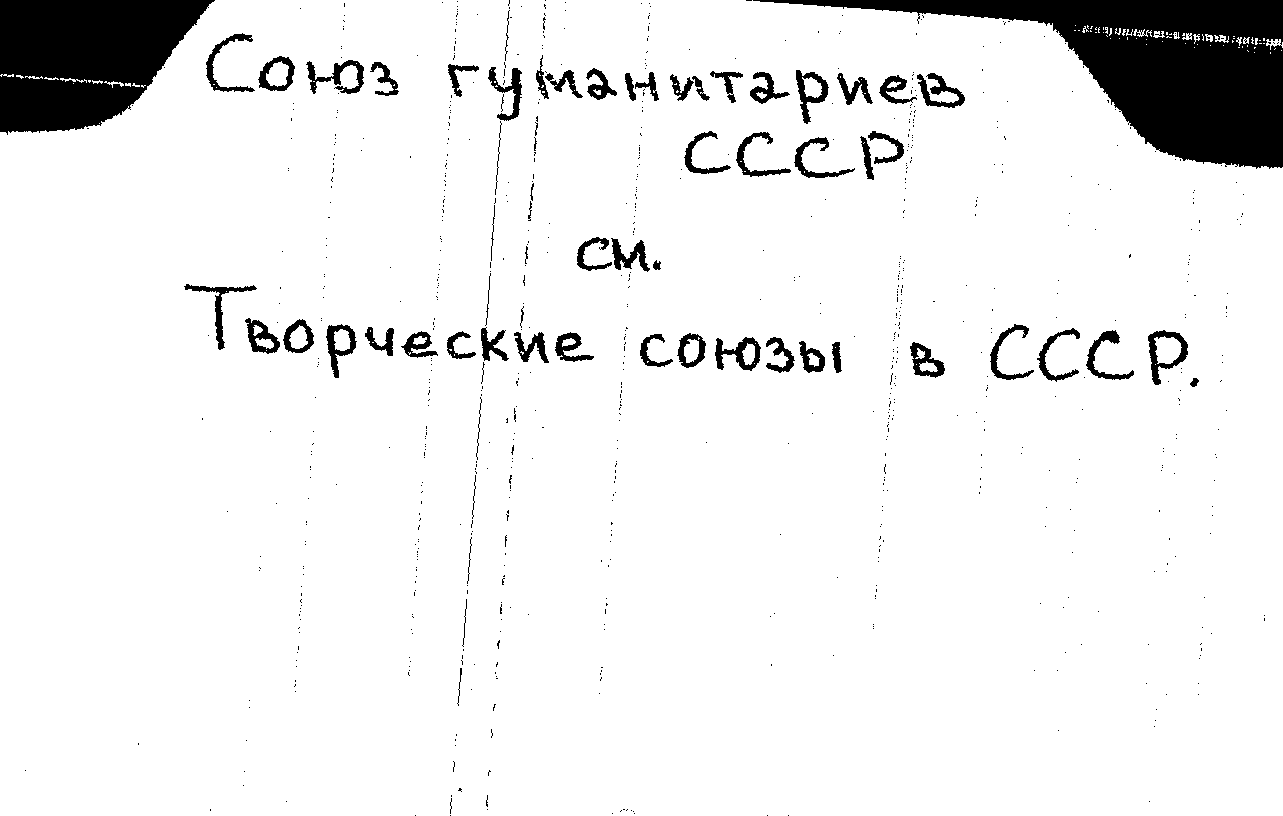 Союз гуманитариев
СССР
см.
Творческие союзы в СССР.